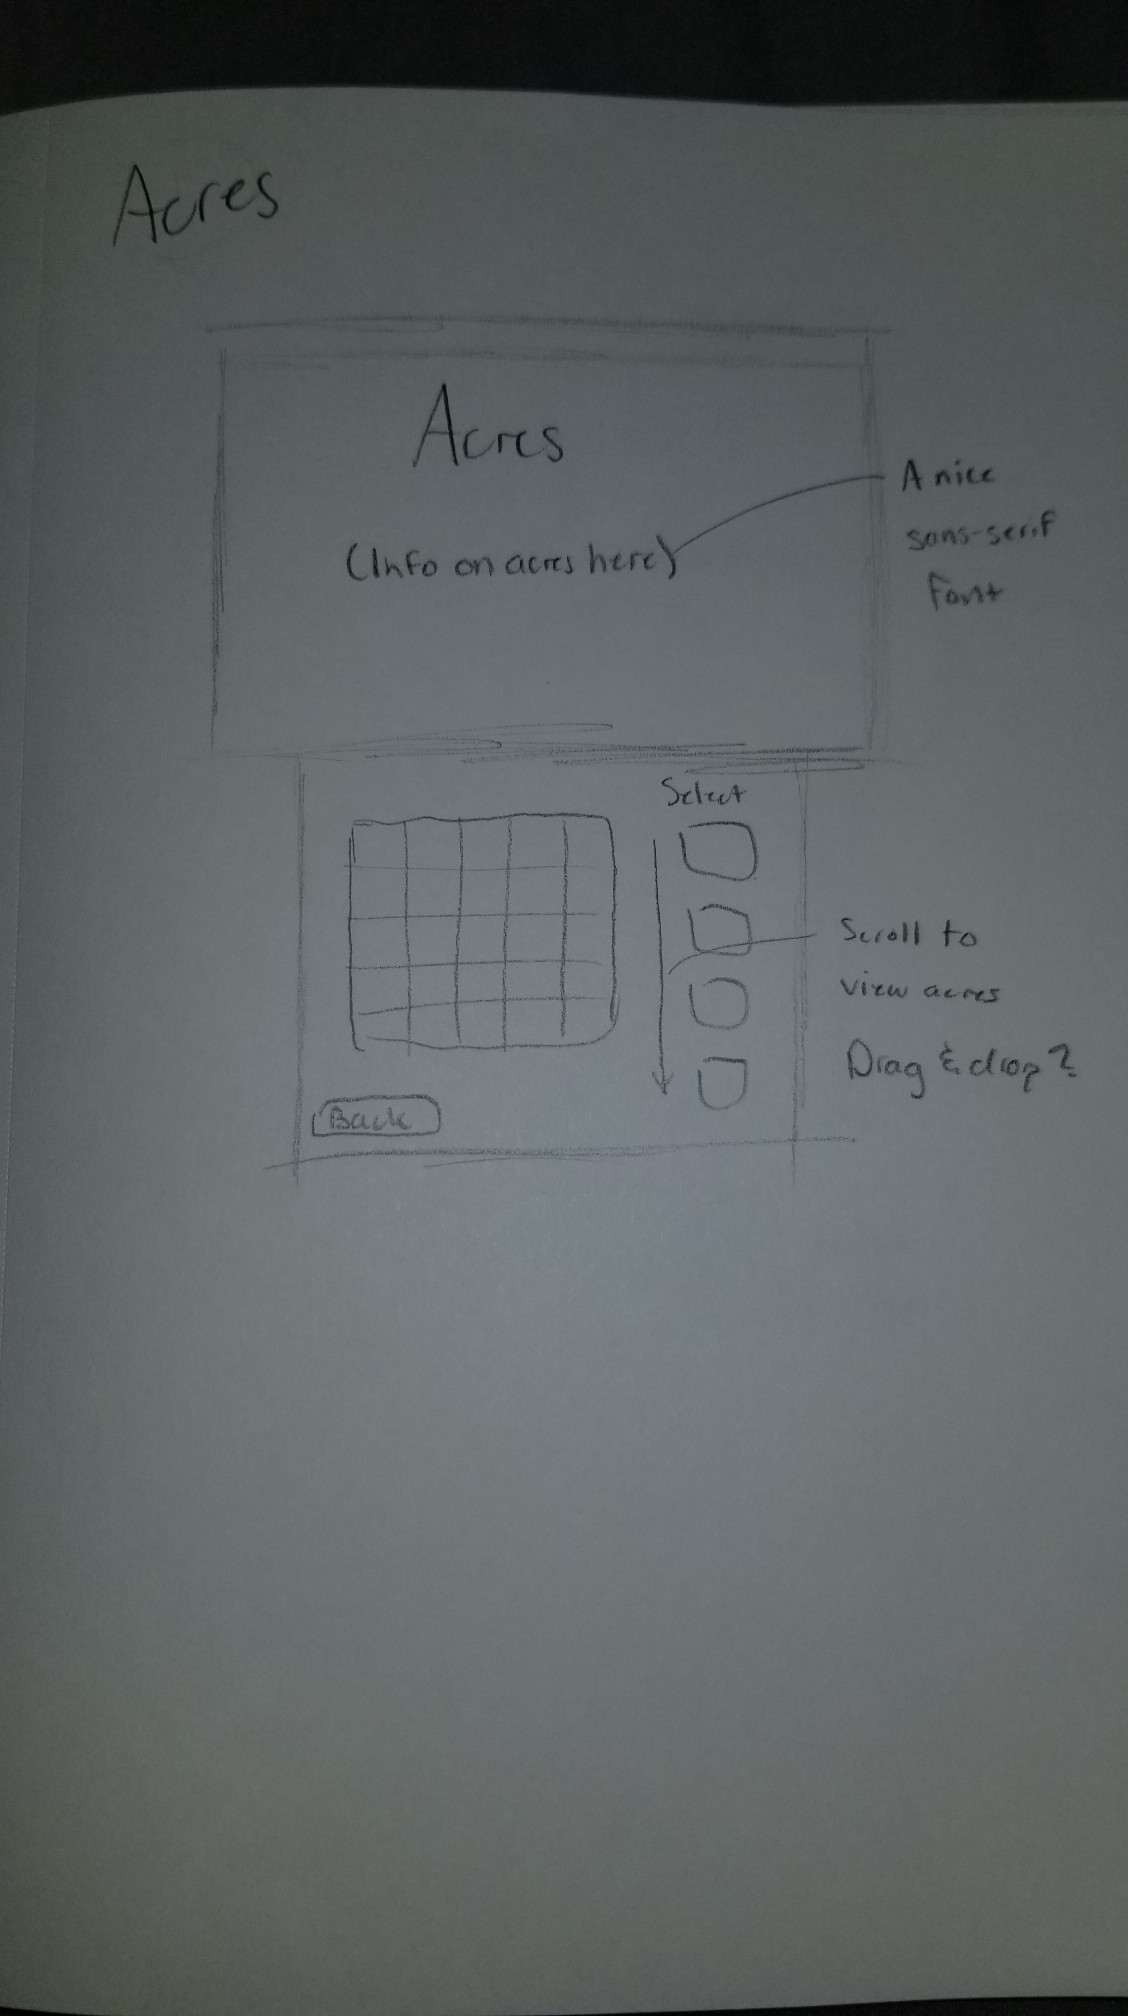 Acres
Acres
(Info on acres here)
A nice
sans-serif
font
Select
Scroll to
view acres
Drag & drop?
Back